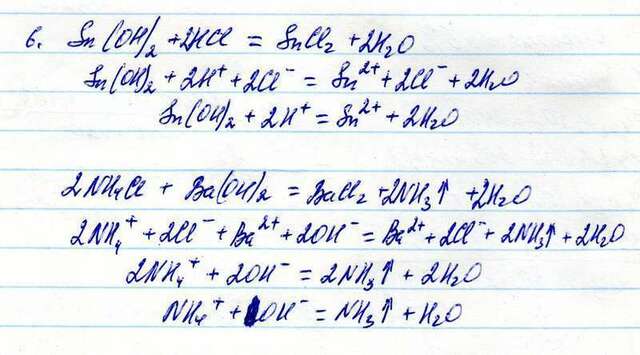 6. Sn(OH)₂ + 2HCl = SnCl₂ + 2H₂O
Sn(OH)₂ + 2H⁺ + 2Cl⁻ = Sn²⁺ + 2Cl⁻ + 2H₂O
Sn(OH)₂ + 2H⁺ = Sn²⁺ + 2H₂O
2NH₄Cl + Ba(OH)₂ = BaCl₂ + 2NH₃↑ + 2H₂O
2NH₄⁺ + 2Cl⁻ + Ba²⁺ + 2OH⁻ = Ba²⁺ + 2Cl⁻ + 2NH₃↑ + 2H₂O
2NH₄⁺ + 2OH⁻ = 2NH₃↑ + 2H₂O
NH₄⁺ + OH⁻ = NH₃↑ + H₂O